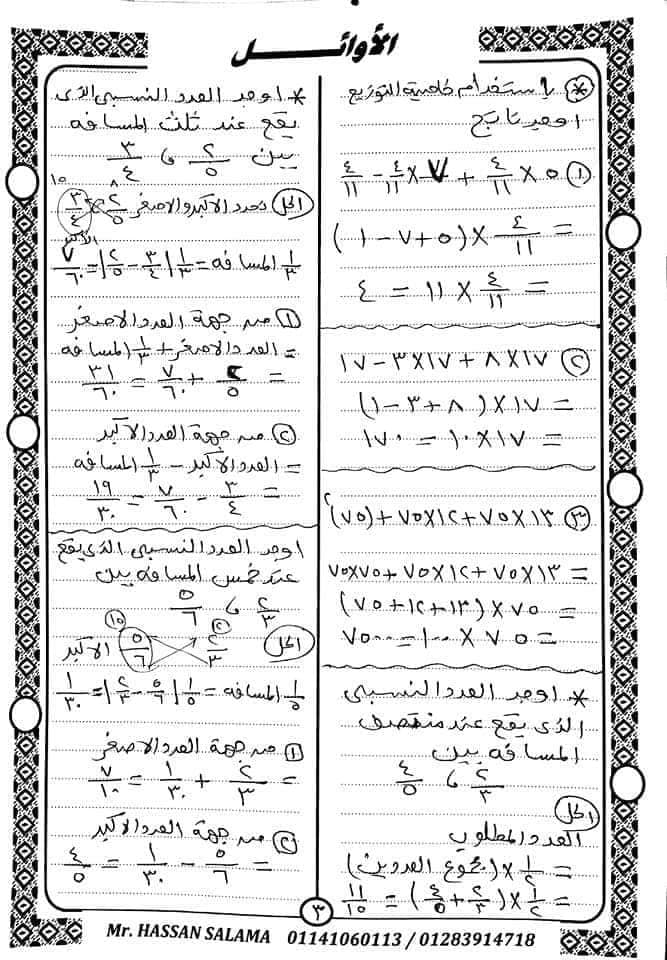 الأوائل
* باستخدام خاصية التوزيع
اوجد ناتج
① ٥ × ٤/١١ + ٧ × ٤/١١ - ٤/١١
= ٤/١١ × (٥ + ٧ - ١)
= ٤/١١ × ١١ = ٤
② ١٧ × ٨ + ١٧ × ٣ - ١٧
= ١٧ × (٨ + ٣ - ١)
= ١٧ × ١٠ = ١٧٠
③ ١٣ × ٧٥ + ١٢ × ٧٥ + (٧٥)٢
= ١٣ × ٧٥ + ١٢ × ٧٥ + ٧٥ × ٧٥
= ٧٥ × (١٣ + ١٢ + ٧٥)
= ٧٥ × ١٠٠ = ٧٥٠٠
* اوجد العدد النسبى
الذى يقع عند منتصف
المسافه بين
٢/٣ ، ٤/٥
الحل
العدد المطلوب
= ١/٢ × (مجموع العددين)
= ١/٢ × (٢/٣ + ٤/٥) = ١١/١٥
* اوجد العدد النسبى الذى
يقع عند ثلث المسافه
بين ٢/٥ ، ٣/٤
الحل نحدد الأكبر والاصغر ٢/٥ ٣/٤
٨ ١٥
الأكبر
١/٣ المسافه = ١/٣ |٣/٤ - ٢/٥| = ٧/٦٠
① من جهة العدد الاصغر
= العدد الاصغر + ١/٣ المسافه
= ٢/٥ + ٧/٦٠ = ٣١/٦٠
② من جهة العدد الاكبر
= العدد الاكبر - ١/٣ المسافه
= ٣/٤ - ٧/٦٠ = ١٩/٣٠
اوجد العدد النسبى الذى يقع
عند خمس المسافه بين
٢/٣ ، ٥/٦
الحل ٢/٣ ٥/٦ الاكبر
١/٥ المسافه = ١/٥ |٥/٦ - ٢/٣| = ١/٣٠
① من جهة العدد الاصغر
= ٢/٣ + ١/٣٠ = ٧/١٠
② من جهة العدد الاكبر
= ٥/٦ - ١/٣٠ = ٤/٥
٣
Mr. HASSAN SALAMA 01141060113 / 01283914718